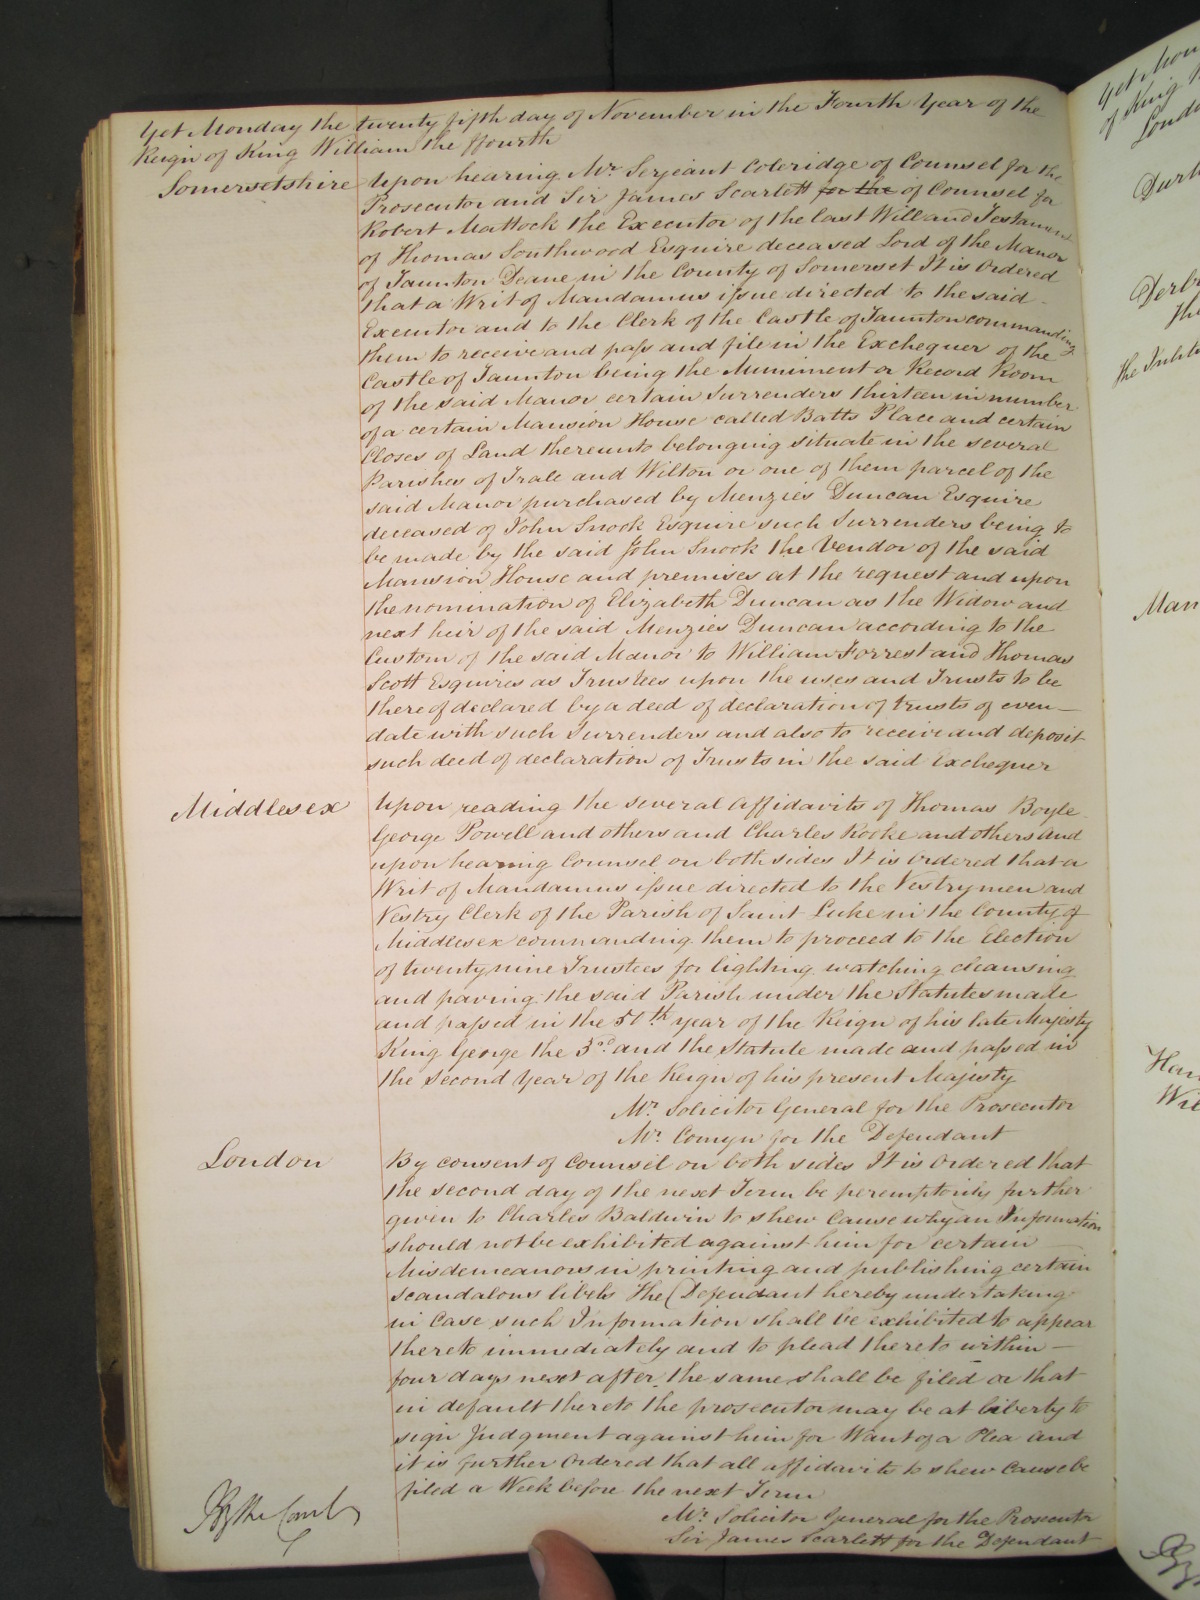 Yet Monday the twenty fifth day of November in the Fourth Year of the
Reign of King William the ffourth
Somersetshire Upon hearing Mr. Serjeant Coleridge of Counsel for the
Prosecutor and Sir James Scarlett for the of Counsel for
Robert Mattock the Executor of the last Will and Testament
of Thomas Southwood Esquire deceased Lord of the Manor
of Taunton Deane in the County of Somerset It is Ordered
that a Writ of Mandamus issue directed to the said
Executor and to the Clerk of the Castle of Taunton commanding
them to receive and pass and file in the Exchequer of the
Castle of Taunton being the Muniment or Record Room
of the said Manor certain Surrenders thirteen in number
of a certain Mansion House called Batts Place and certain
Closes of Land thereunto belonging situate in the several
Parishes of Trale and Wilton or one of them parcel of the
said Manor purchased by Menzies Duncan Esquire
deceased of John Snook Esquire such Surrenders being to
be made by the said John Snook the Vendor of the said
Mansion House and premises at the request and upon
the nomination of Elizabeth Duncan as the Widow and
next heir of the said Menzies Duncan according to the
Custom of the said Manor to William Forrest and Thomas
Scott Esquires as Trustees upon the uses and Trusts to be
thereof declared by a deed of declaration of trusts of even
date with such Surrenders and also to receive and deposit
such deed of declaration of Trusts in the said Exchequer
Middlesex Upon reading the several affidavits of Thomas Boyle
George Powell and others and Charles Rooke and others and
upon hearing Counsel on both sides It is Ordered that a
Writ of Mandamus issue directed to the Vestrymen and
Vestry Clerk of the Parish of Saint Luke in the County of
Middlesex commanding them to proceed to the Election
of twenty nine Trustees for lighting watching cleansing
and paving the said Parish under the Statutes made
and passed in the 50th year of the Reign of his late Majesty
King George the 3rd and the Statute made and passed in
the second Year of the Reign of his present Majesty
Mr. Solicitor General for the Prosecutor
Mr. Comyn for the Defendant
London By consent of Counsel on both sides It is Ordered that
the second day of the next Term be peremptorily further
given to Charles Baldwin to shew Cause why an Information
should not be exhibited against him for certain
Misdemeanors in printing and publishing certain
scandalous libels The Defendant hereby undertaking
in Case such Information shall be exhibited to appear
thereto immediately and to plead thereto within
four days next after the same shall be filed or that
in default thereto the prosecutor may be at liberty to
sign Judgment against him for Want of a Plea and
it is further Ordered that all affidavits to shew Cause be
filed a Week before the next Term
Mr. Solicitor General for the Prosecutor
Sir James Scarlett for the Defendant